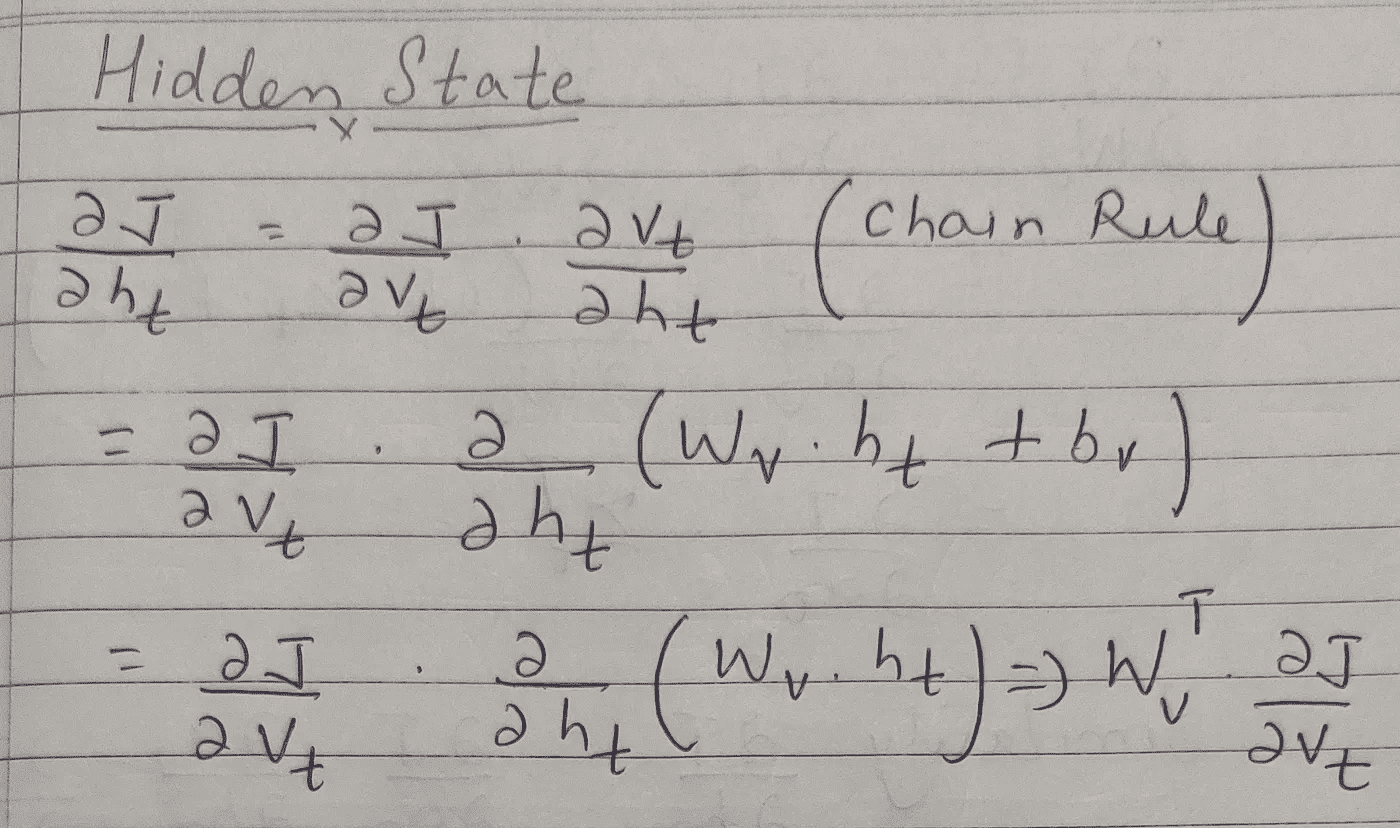 Hidden State
∂J/∂h_t = ∂J/∂v_t · ∂v_t/∂h_t (Chain Rule)
= ∂J/∂v_t · ∂/∂h_t (W_v · h_t + b_v)
= ∂J/∂v_t · ∂/∂h_t (W_v · h_t) ⇒ W_v^T · ∂J/∂v_t